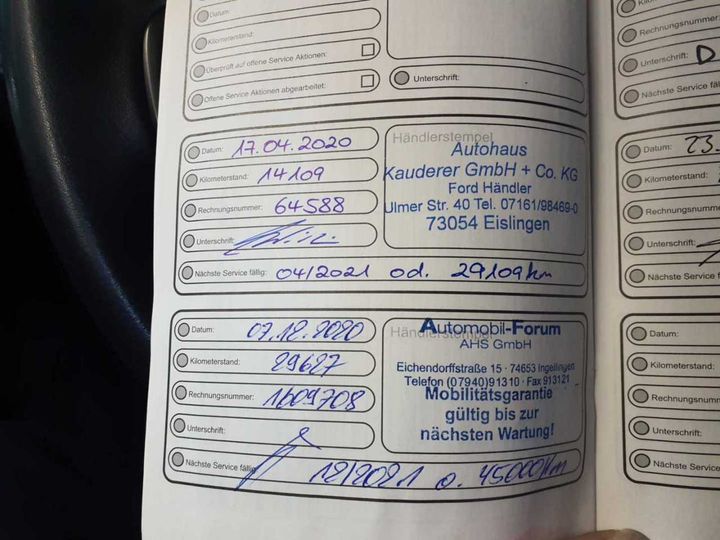 Datum:
Kilometerstand:
Überprüft auf offene Service Aktionen:
Offene Service Aktionen abgearbeitet:
Unterschrift:
Datum: 17.04.2020
Kilometerstand: 14109
Rechnungsnummer: 64588
Unterschrift:
Nächste Service fällig: 04/2021 od. 29109km
Händlerstempel
Autohaus
Kauderer GmbH + Co. KG
Ford Händler
Ulmer Str. 40 Tel. 07161/98469-0
73054 Eislingen
Datum: 07.12.2020
Kilometerstand: 29627
Rechnungsnummer: 1609708
Unterschrift:
Nächste Service fällig: 12/2021 o. 45000km
Händlerstempel
Automobil-Forum
AHS GmbH
Eichendorffstraße 15 · 74653 Ingelfingen
Telefon (07940)91310 · Fax 913121
Mobilitätsgarantie
gültig bis zur
nächsten Wartung!
Rechnungsnummer
Unterschrift: D
Nächste Service fäll
Datum: 23.
Kilometerstand:
Rechnungsnummer
Unterschrift:
Nächste Service f
Datum:
Kilometerstand:
Rechnungsnumm
Unterschrift:
Nächste Service